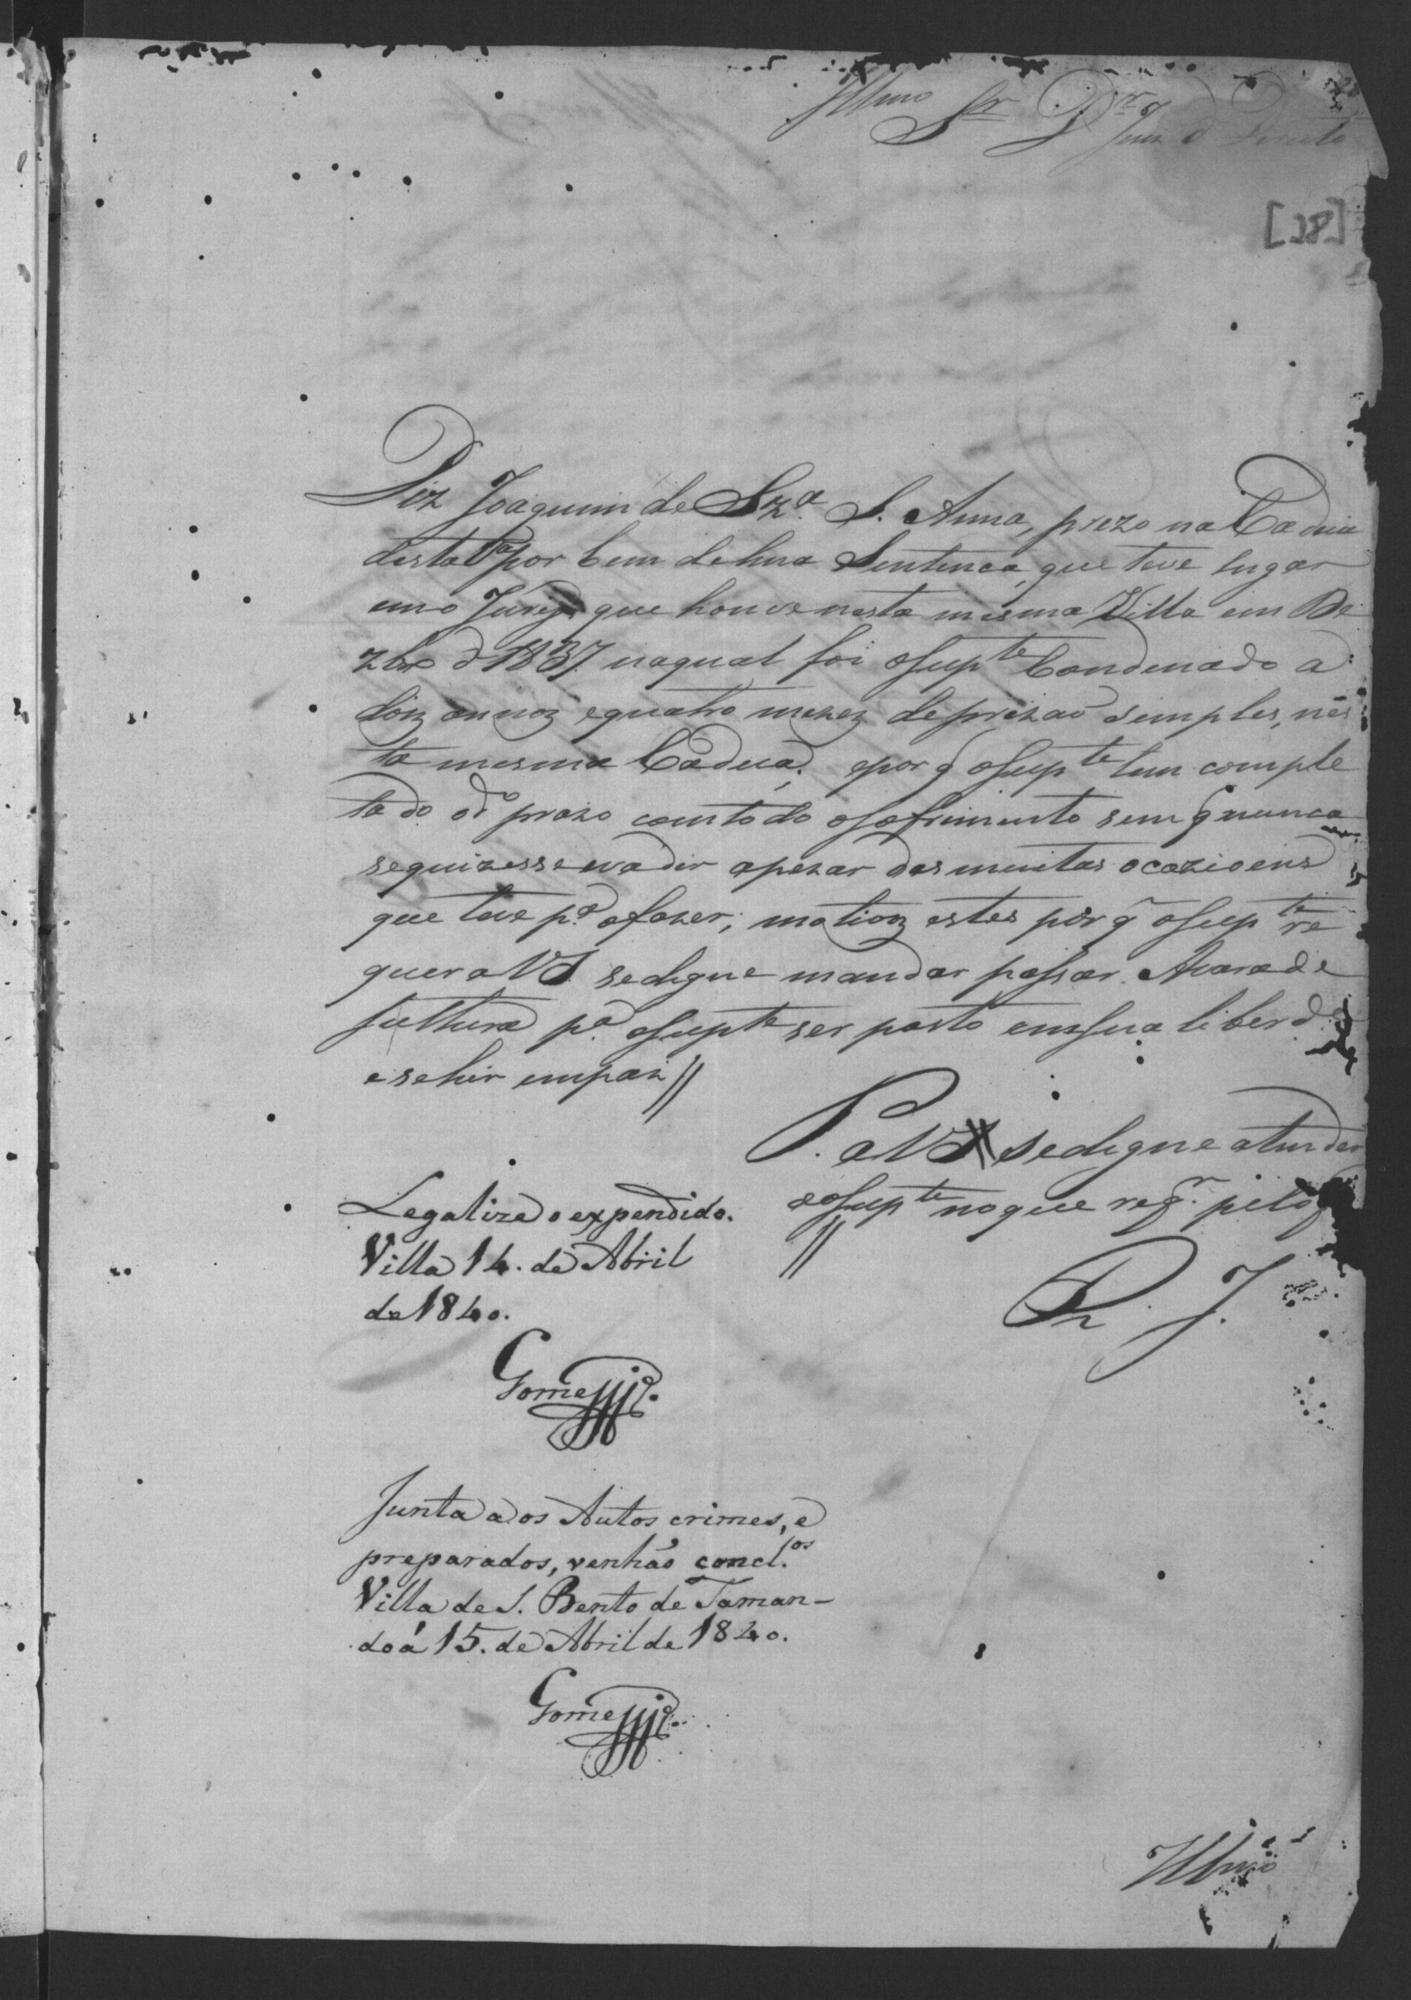 Illmo Sr Dr Juiz d Direito
[28]
Diz Joaquim de Sza. S. Anna, prezo na Cadeia
desta Va por bem de hua Sentenca, que teve lugar
em o Jury que houve nesta mesma Villa em De
zbro d 1837 naqual foi o Suppte Condenado a
dois annoz equatro mezez de prizaõ simples, nes
ta mesma Cadeia; epor q o Suppte tem comple
tado o do prazo com todo o sofrimento sem q nunca
se quizesse evadir apezar das muitas ocazioens
que teve pa o fazer; motioz estes por q o Suppte re
quer a VS. se digne mandar passar Alvara de
Soltura pa o Suppte ser posto em sua liberde
e se hir em paz //
P. a VS. se digne atender
ao Suppte no que reqr. pelo q
//
R. J.
Legalize o expendido.
Villa 14. de Abril
de 1840.
Gomes
Junta aos Autos crimes, e
preparados, venhão concl.os
Villa de S. Bento de Taman-
doá 15. de Abril de 1840.
Gomes
Illmo